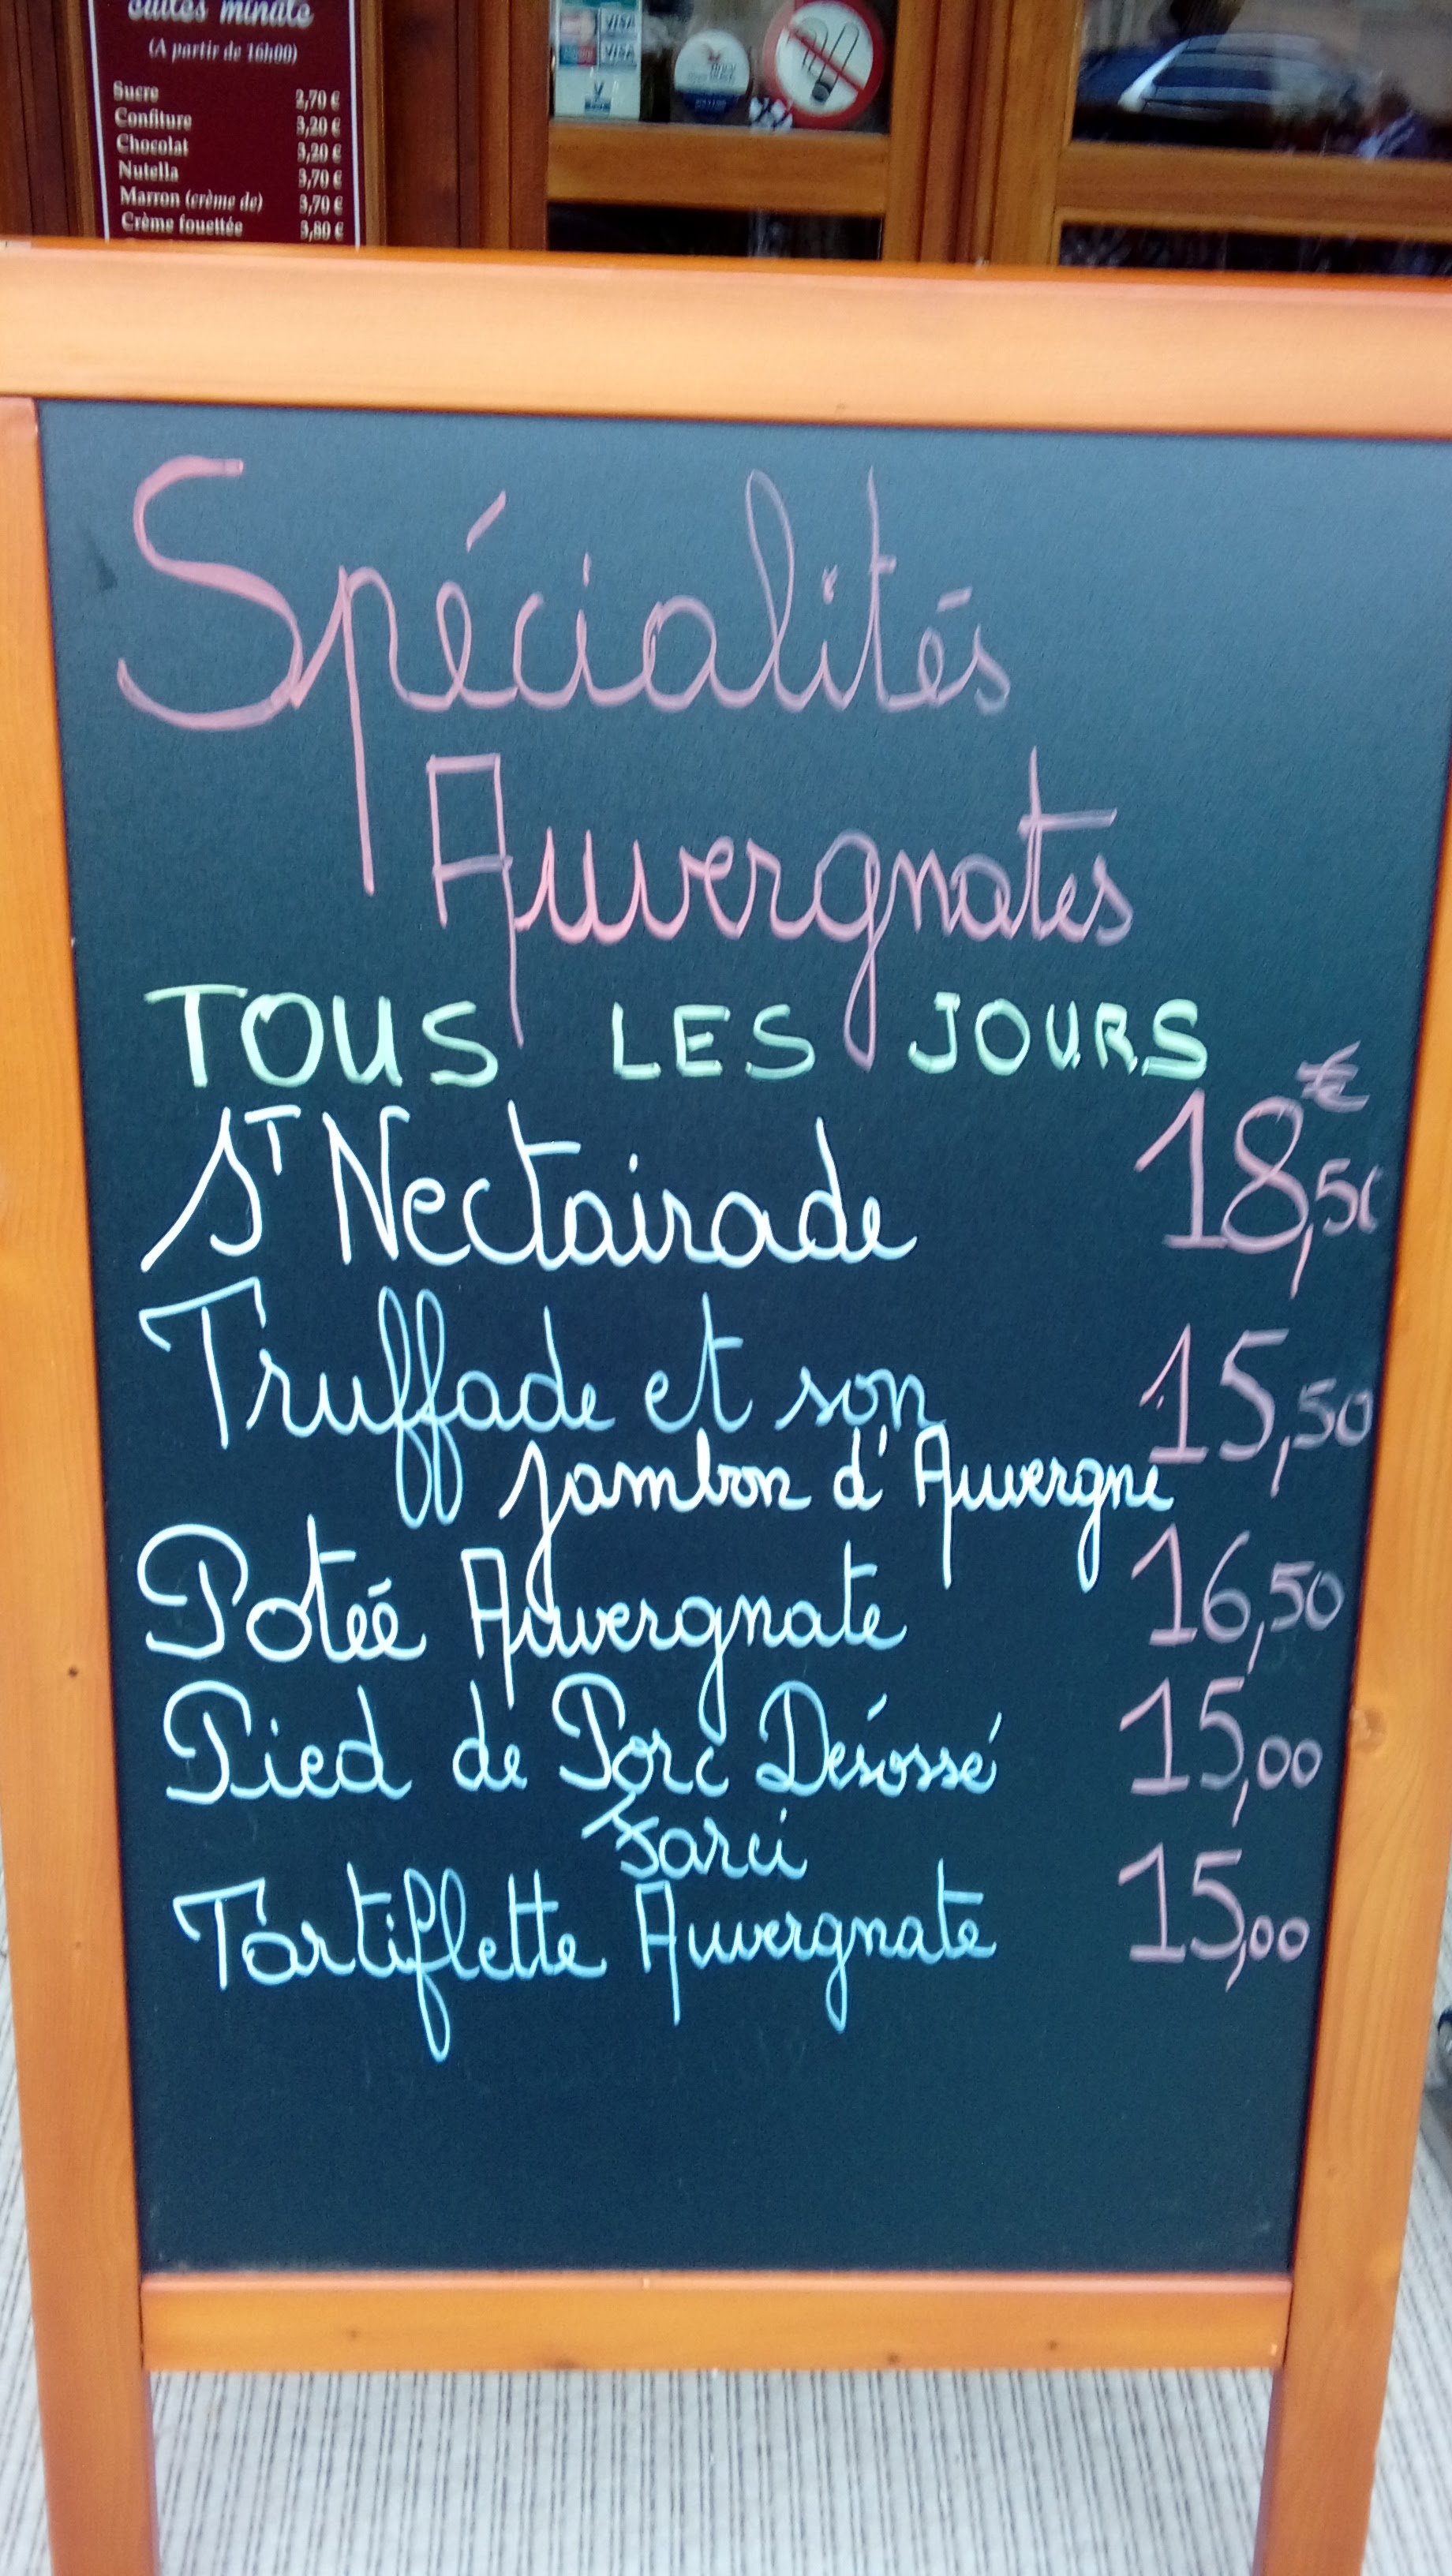 cuites minute
(A partir de 16h00)
Sucre 2,70 €
Confiture 3,20 €
Chocolat 3,20 €
Nutella 3,70 €
Marron (crème de) 3,70 €
Crème fouettée 3,80 €
VISA
VISA
Spécialités
Auvergnates
TOUS LES JOURS
€
ST Nectairade 18,50
Truffade et son 15,50
jambon d'Auvergne
Potée Auvergnate 16,50
Pied de Porc Désossé 15,00
Farci
Tartiflette Auvergnate 15,00